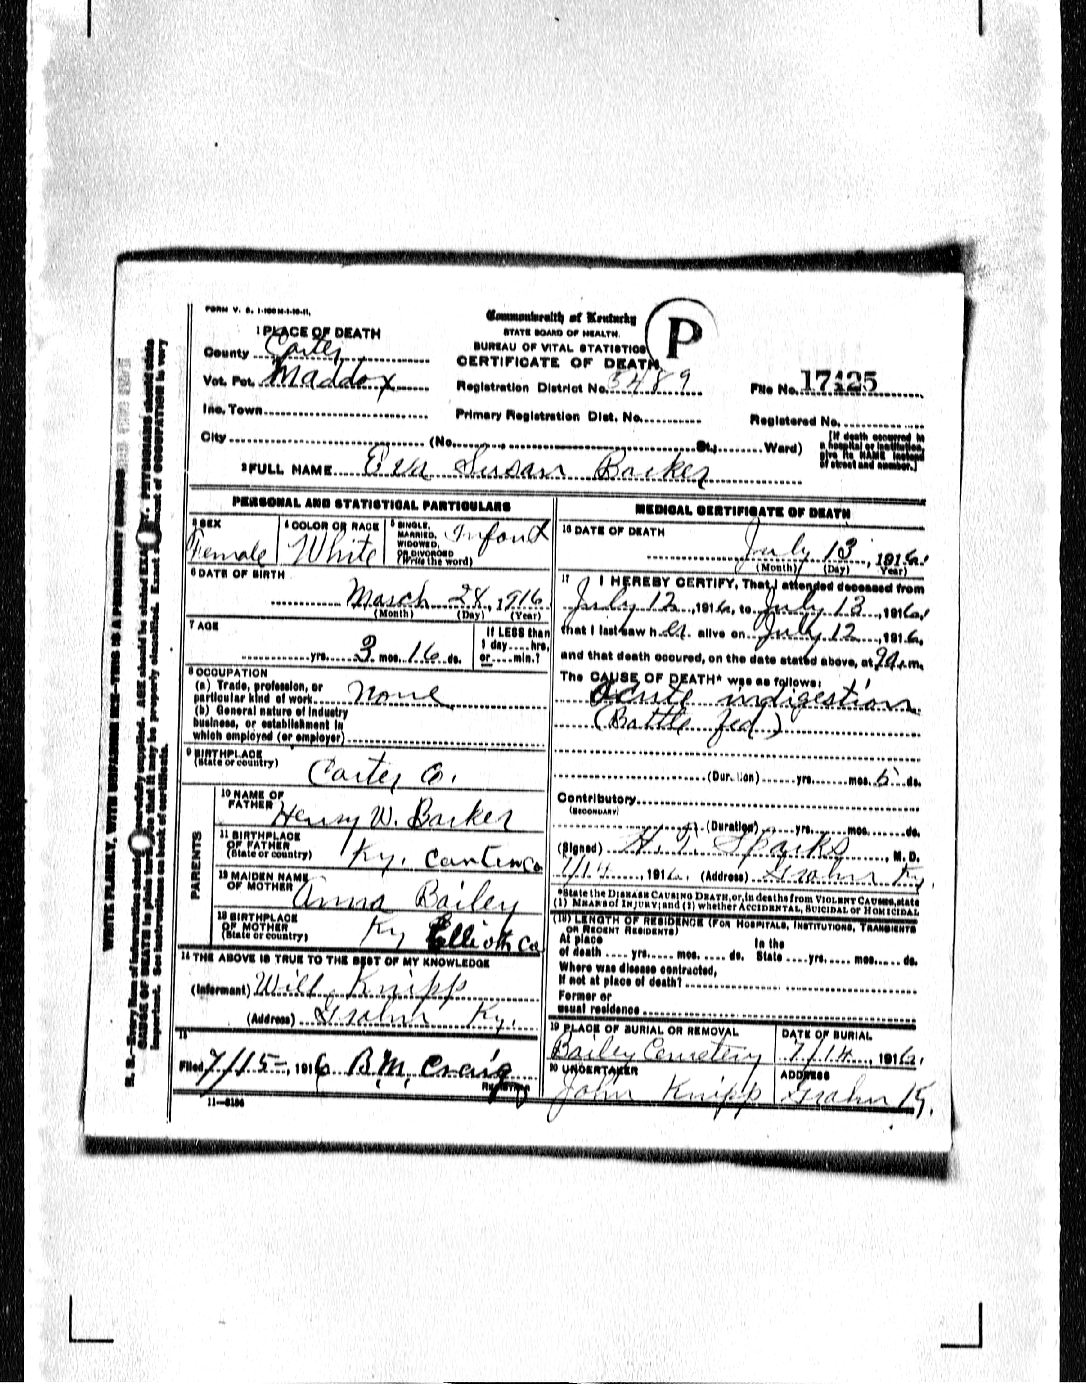 FORM V. S. 1-100M-1-10-11.
Commonwealth of Kentucky
STATE BOARD OF HEALTH.
BUREAU OF VITAL STATISTICS
CERTIFICATE OF DEATH
P
1 PLACE OF DEATH
County Carter
Vot. Pct. Maddox
Registration District No. 3489
File No. 17425
Inc. Town
Primary Registration Dist. No.
Registered No.
City (No. St.; Ward)
[If death occurred in
a hospital or institution,
give its NAME instead
of street and number.]
2 FULL NAME Eva Susan Barker
PERSONAL AND STATISTICAL PARTICULARS
3 SEX
Female
4 COLOR OR RACE
White
5 SINGLE,
MARRIED,
WIDOWED,
OR DIVORCED
(Write the word)
Infant
6 DATE OF BIRTH
March 28, 1916
(Month) (Day) (Year)
7 AGE
yrs. 3 mos. 16 ds.
If LESS than
1 day hrs,
or min.?
8 OCCUPATION
(a) Trade, profession, or
particular kind of work none
(b) General nature of industry
business, or establishment in
which employed (or employer)
9 BIRTHPLACE
(State or country)
Carter Co.
PARENTS
10 NAME OF
FATHER
Henry W. Barker
11 BIRTHPLACE
OF FATHER
(State or country)
Ky. Carter Co
12 MAIDEN NAME
OF MOTHER
Anna Bailey
13 BIRTHPLACE
OF MOTHER
(State or country)
Ky Elliott Co
14 THE ABOVE IS TRUE TO THE BEST OF MY KNOWLEDGE
(Informant) Will Knipp
(Address) Grahn Ky.
15
Filed 7/15-, 1916 B.M. Craig
REGISTRAR
11-3184
MEDICAL CERTIFICATE OF DEATH
16 DATE OF DEATH
July 13, 1916.
(Month) (Day) (Year)
17 I HEREBY CERTIFY, That I attended deceased from
July 12, 1916, to July 13, 1916,
that I last saw her alive on July 12, 1916,
and that death occured, on the date stated above, at 9 a.m.
The CAUSE OF DEATH* was as follows:
Acute indigestion
(Bottle fed)
(Duration) yrs. mos. 5 ds.
Contributory
(SECONDARY)
(Duration) yrs. mos. ds.
(Signed) H. T. Sparks, M. D.
7/14, 1916. (Address) Grahn Ky.
*State the DISEASE CAUSING DEATH, or, in deaths from VIOLENT CAUSES, state
(1) MEANS of INJURY; and (2) whether ACCIDENTAL, SUICIDAL or HOMICIDAL
(18) LENGTH OF RESIDENCE (FOR HOSPITALS, INSTITUTIONS, TRANSIENTS
OR RECENT RESIDENTS)
At place
of death yrs. mos. ds.
In the
State yrs. mos. ds.
Where was disease contracted,
if not at place of death?
Former or
usual residence
19 PLACE OF BURIAL OR REMOVAL
Bailey Cemetery
DATE OF BURIAL
7/14, 1916.
20 UNDERTAKER
John Knipp
ADDRESS
Grahn Ky.
WRITE PLAINLY, WITH UNFADING INK—THIS IS A PERMANENT RECORD